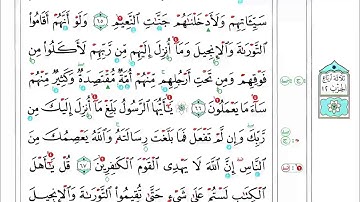 سَيِّـَٔاتِهِمْ وَلَأَدْخَلْنَٰهُمْ جَنَّٰتِ ٱلنَّعِيمِ ٦٥ وَلَوْ أَنَّهُمْ أَقَامُوا۟
ٱلتَّوْرَىٰةَ وَٱلْإِنجِيلَ وَمَآ أُنزِلَ إِلَيْهِم مِّن رَّبِّهِمْ لَأَكَلُوا۟ مِن
فَوْقِهِمْ وَمِن تَحْتِ أَرْجُلِهِم مِّنْهُمْ أُمَّةٌ مُّقْتَصِدَةٌ وَكَثِيرٌ مِّنْهُمْ
سَآءَ مَا يَعْمَلُونَ ٦٦ يَٰٓأَيُّهَا ٱلرَّسُولُ بَلِّغْ مَآ أُنزِلَ إِلَيْكَ مِن
رَّبِّكَ وَإِن لَّمْ تَفْعَلْ فَمَا بَلَّغْتَ رِسَالَتَهُۥ وَٱللَّهُ يَعْصِمُكَ مِنَ
ٱلنَّاسِ إِنَّ ٱللَّهَ لَا يَهْدِى ٱلْقَوْمَ ٱلْكَٰفِرِينَ ٦٧ قُلْ يَٰٓأَهْلَ
ٱلْكِتَٰبِ لَسْتُمْ عَلَىٰ شَىْءٍ حَتَّىٰ تُقِيمُوا۟ ٱلتَّوْرَىٰةَ وَٱلْإِنجِيلَ